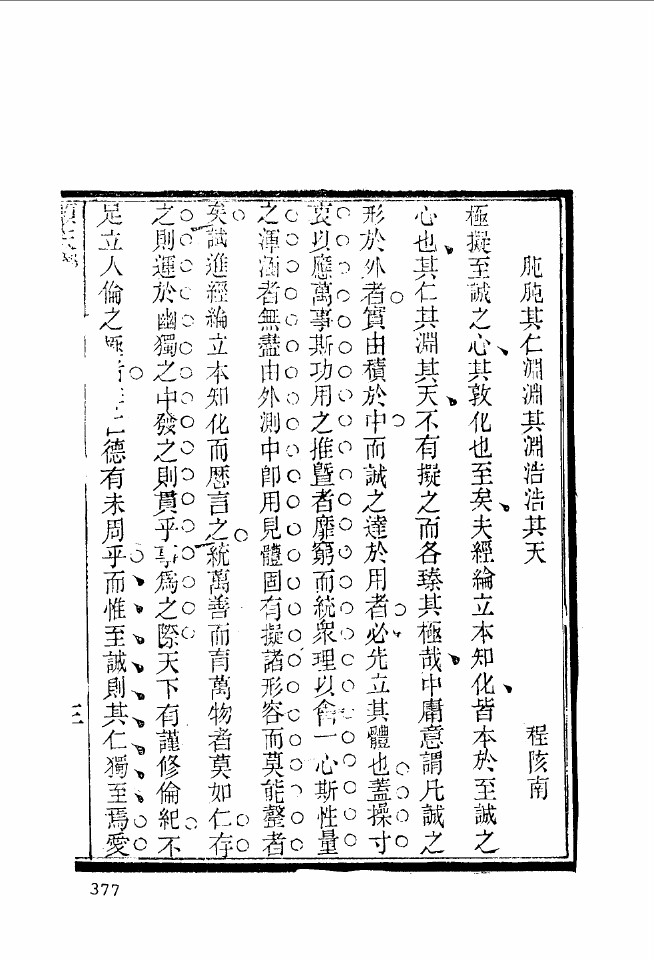 肫肫其仁淵淵其淵浩浩其天
程陔南
極擬至誠之心其敦化也至矣夫經綸立本知化皆本於至誠之
心也其仁其淵其天不有擬之而各臻其極哉中庸意謂凡誠之
形於外者實由積於中而誠之達於用者必先立其體也蓋操寸
衷以應萬事斯功用之推曁者靡窮而統衆理以會一心斯性量
之渾涵者無盡由外測中卽用見體固有擬諸形容而莫能罄者
矣試進經綸立本知化而歷言之統萬善而育萬物者莫如仁存
之則運於幽獨之中發之則貫乎事爲之際天下有謹修倫紀不
足立人倫之極者仁德有未周乎而惟至誠則其仁獨至焉愛
三
377